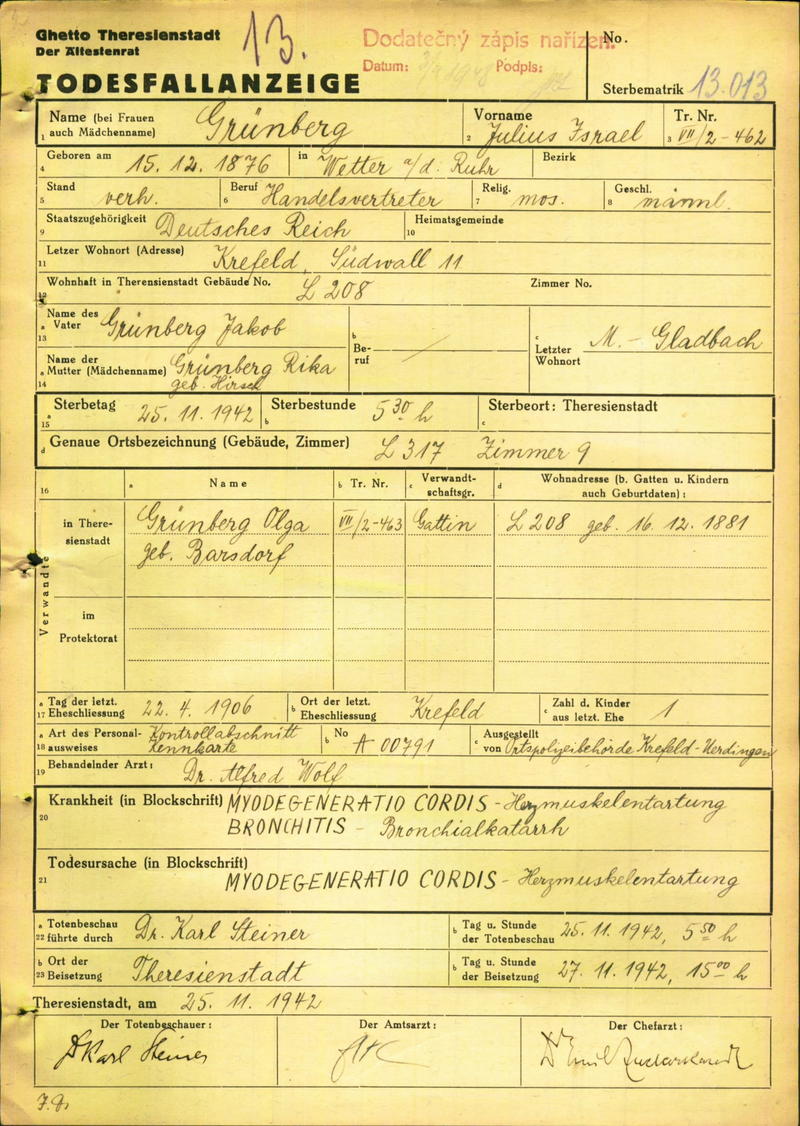 Ghetto Theresienstadt
Der Ältestenrat
13.
Dodatečný zápis nařízen.
Datum: 1948 Podpis:
No.
TODESFALLANZEIGE
Sterbematrik 13.013
Name (bei Frauen auch Mädchenname) Grünberg
1
Vorname Julius Israel
2
Tr. Nr. VII/2-462
3
4 Geboren am 15. 12. 1876 in Wetter a/d. Ruhr Bezirk
5 Stand verh. 6 Beruf Handelsvertreter 7 Relig. mos. 8 Geschl. männl.
9 Staatszugehörigkeit Deutsches Reich 10 Heimatsgemeinde
11 Letzer Wohnort (Adresse) Krefeld, Südwall 11
12 Wohnhaft in Therensienstadt Gebäude No. L 208 Zimmer No.
13 a Name des Vater Grünberg Jakob
14 a Name der Mutter (Mädchenname) Grünberg Rika
geb. Hirsch
b Beruf
c Letzter Wohnort M.-Gladbach
15 a Sterbetag 25. 11. 1942 b Sterbestunde 5 30 h c Sterbeort: Theresienstadt
d Genaue Ortsbezeichnung (Gebäude, Zimmer) L 317 Zimmer 9
16 a Name b Tr. Nr. c Verwandt-
schaftsgr. d Wohnadresse (b. Gatten u. Kindern
auch Geburtdaten):
Verwandte
in There-
sienstadt
Grünberg Olga VII/2-463 Gattin L 208 geb. 16. 12. 1881
geb. Barsdorf
im
Protektorat
17 a Tag der letzt. Eheschliessung 22. 4. 1906 b Ort der letzt. Eheschliessung Krefeld c Zahl d. Kinder aus letzt. Ehe 1
18 a Art des Personal-
ausweises Kontrollabschnitt
Kennkarte b No A 00791 c Ausgestellt von Ortspolzeibehörde Krefeld-Uerdingen
19 Behandelnder Arzt: Dr. Alfred Wolf
20 Krankheit (in Blockschrift) MYODEGENERATIO CORDIS - Herzmuskelentartung
BRONCHITIS - Bronchialkatarrh
21 Todesursache (in Blockschrift)
MYODEGENERATIO CORDIS - Herzmuskelentartung
22 a Totenbeschau führte durch Dr. Karl Steiner b Tag u. Stunde der Totenbeschau 25. 11. 1942, 5 50 h
23 b Ort der Beisetzung Theresienstadt b Tag u. Stunde der Beisetzung 27. 11. 1942, 15 00 h
Theresienstadt, am 25. 11. 1942
Der Totenbeschauer: Der Amtsarzt: Der Chefarzt:
Dr Karl Steiner
Dr Emil